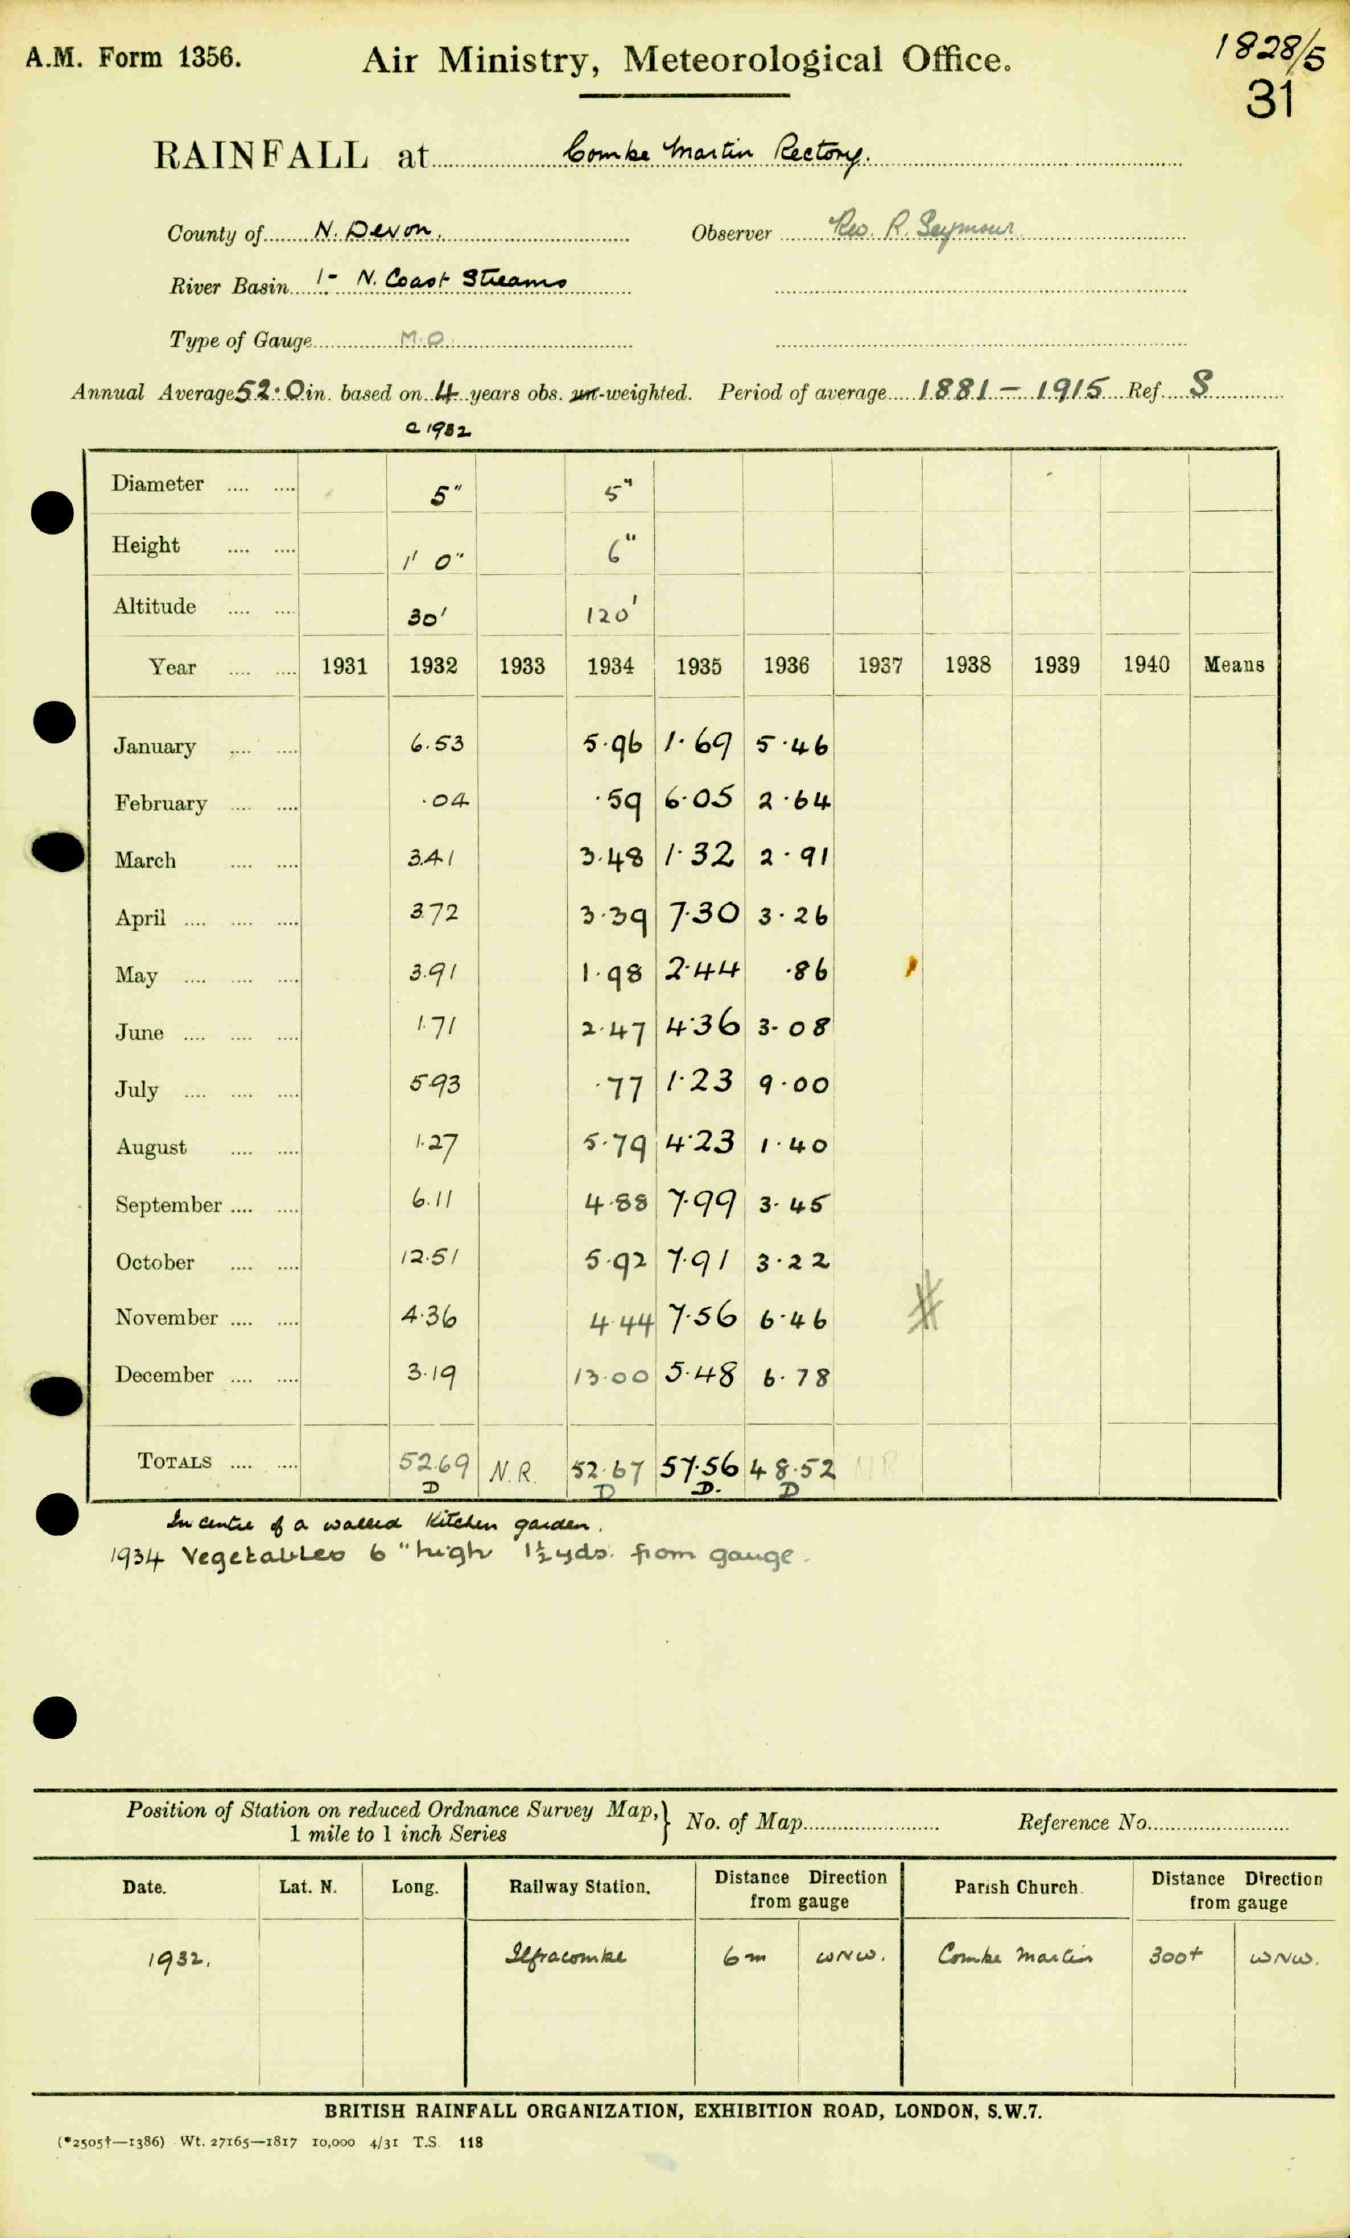 A.M. Form 1356.
Air Ministry, Meteorological Office.
1828/5
31
RAINFALL at Combe Martin Rectory.
County of N. Devon. Observer Rev. R. Seymour
River Basin 1- N. Coast Streams
Type of Gauge M.O.
Annual Average 52.0 in. based on 4 years obs. un-weighted. Period of average 1881 - 1915 Ref. S
c 1932
Diameter .... .... 5" 5"
Height .... .... 1' 0" 6"
Altitude .... .... 30' 120'
Year .... .... 1931 1932 1933 1934 1935 1936 1937 1938 1939 1940 Means
January .... .... 6.53 5.96 1.69 5.46
February .... .... .04 .59 6.05 2.64
March .... .... 3.41 3.48 1.32 2.91
April .... .... .... 3.72 3.39 7.30 3.26
May .... .... .... 3.91 1.98 2.44 .86
June .... .... .... 1.71 2.47 4.36 3.08
July .... .... .... 5.93 .77 1.23 9.00
August .... .... 1.27 5.79 4.23 1.40
September .... .... 6.11 4.88 7.99 3.45
October .... .... 12.51 5.92 7.91 3.22
November .... .... 4.36 4.44 7.56 6.46
December .... .... 3.19 13.00 5.48 6.78
TOTALS .... .... 52.69 N.R. 52.67 57.56 48.52 NR
D D D. D
In centre of a walled kitchen garden.
1934 Vegetables 6" high 1½ yds. from gauge.
Position of Station on reduced Ordnance Survey Map, 1 mile to 1 inch Series } No. of Map Reference No.
Date. Lat. N. Long. Railway Station. Distance from gauge Direction Parish Church. Distance from gauge Direction
1932. Ilfracombe 6m WNW. Combe Martin 300+ WNW.
BRITISH RAINFALL ORGANIZATION, EXHIBITION ROAD, LONDON, S.W.7.
(*2505†—1386) Wt. 27165—1817 10,000 4/31 T.S. 118